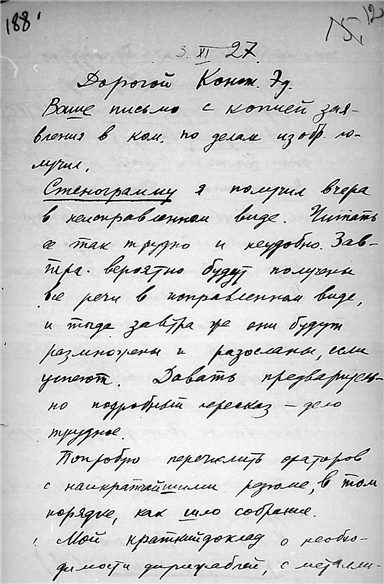 188'
3. XI 27.
Дорогой Конст. Эд.
Ваше письмо с копией зая-
вления в ком. по делам изобр. по-
лучил.
Стенограмму я получил вчера
в неисправленном виде. Читать
ее так трудно и неудобно. Зав-
тра вероятно будут получены
все речи в исправленном виде,
и тогда завтра же они будут
размножены и разосланы, если
успеют. Давать предваритель-
но подробный пересказ — дело
трудное.
Попробую перечислить ораторов
с наикратчайшими резюме, в том
порядке, как шло собрание.
Мой краткий доклад о необхо-
димости дирижаблей, с металли-